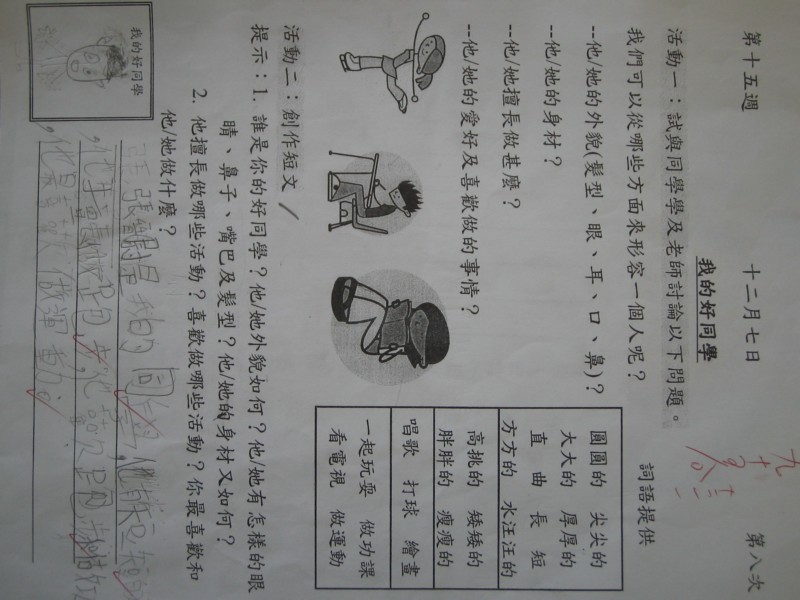 第十五週 十二月七日 第八次
我的好同學
活動一：試與同學及老師討論以下問題。
我們可以從哪些方面來形容一個人呢？
--他/她的外貌(髮型、眼、耳、口、鼻)？
--他/她的身材？
--他/她擅長做甚麼？
--他/她的愛好及喜歡做的事情？
詞語提供
圓圓的 尖尖的
大大的 厚厚的
直 曲 長 短
方方的 水汪汪的
高挑的 矮矮的
胖胖的 瘦瘦的
唱歌 打球 繪畫
一起玩耍 做功課
看電視 做運動
活動二：創作短文
提示：1. 誰是你的好同學？他/她外貌如何？他/她有怎樣的眼
睛、鼻子、嘴巴及髮型？他/她的身材又如何？
2. 他擅長做哪些活動？喜歡做哪些活動？你最喜歡和
他/她做什麼？
我的好同學
是我的同學，他
，他
，他最喜歡做運動。